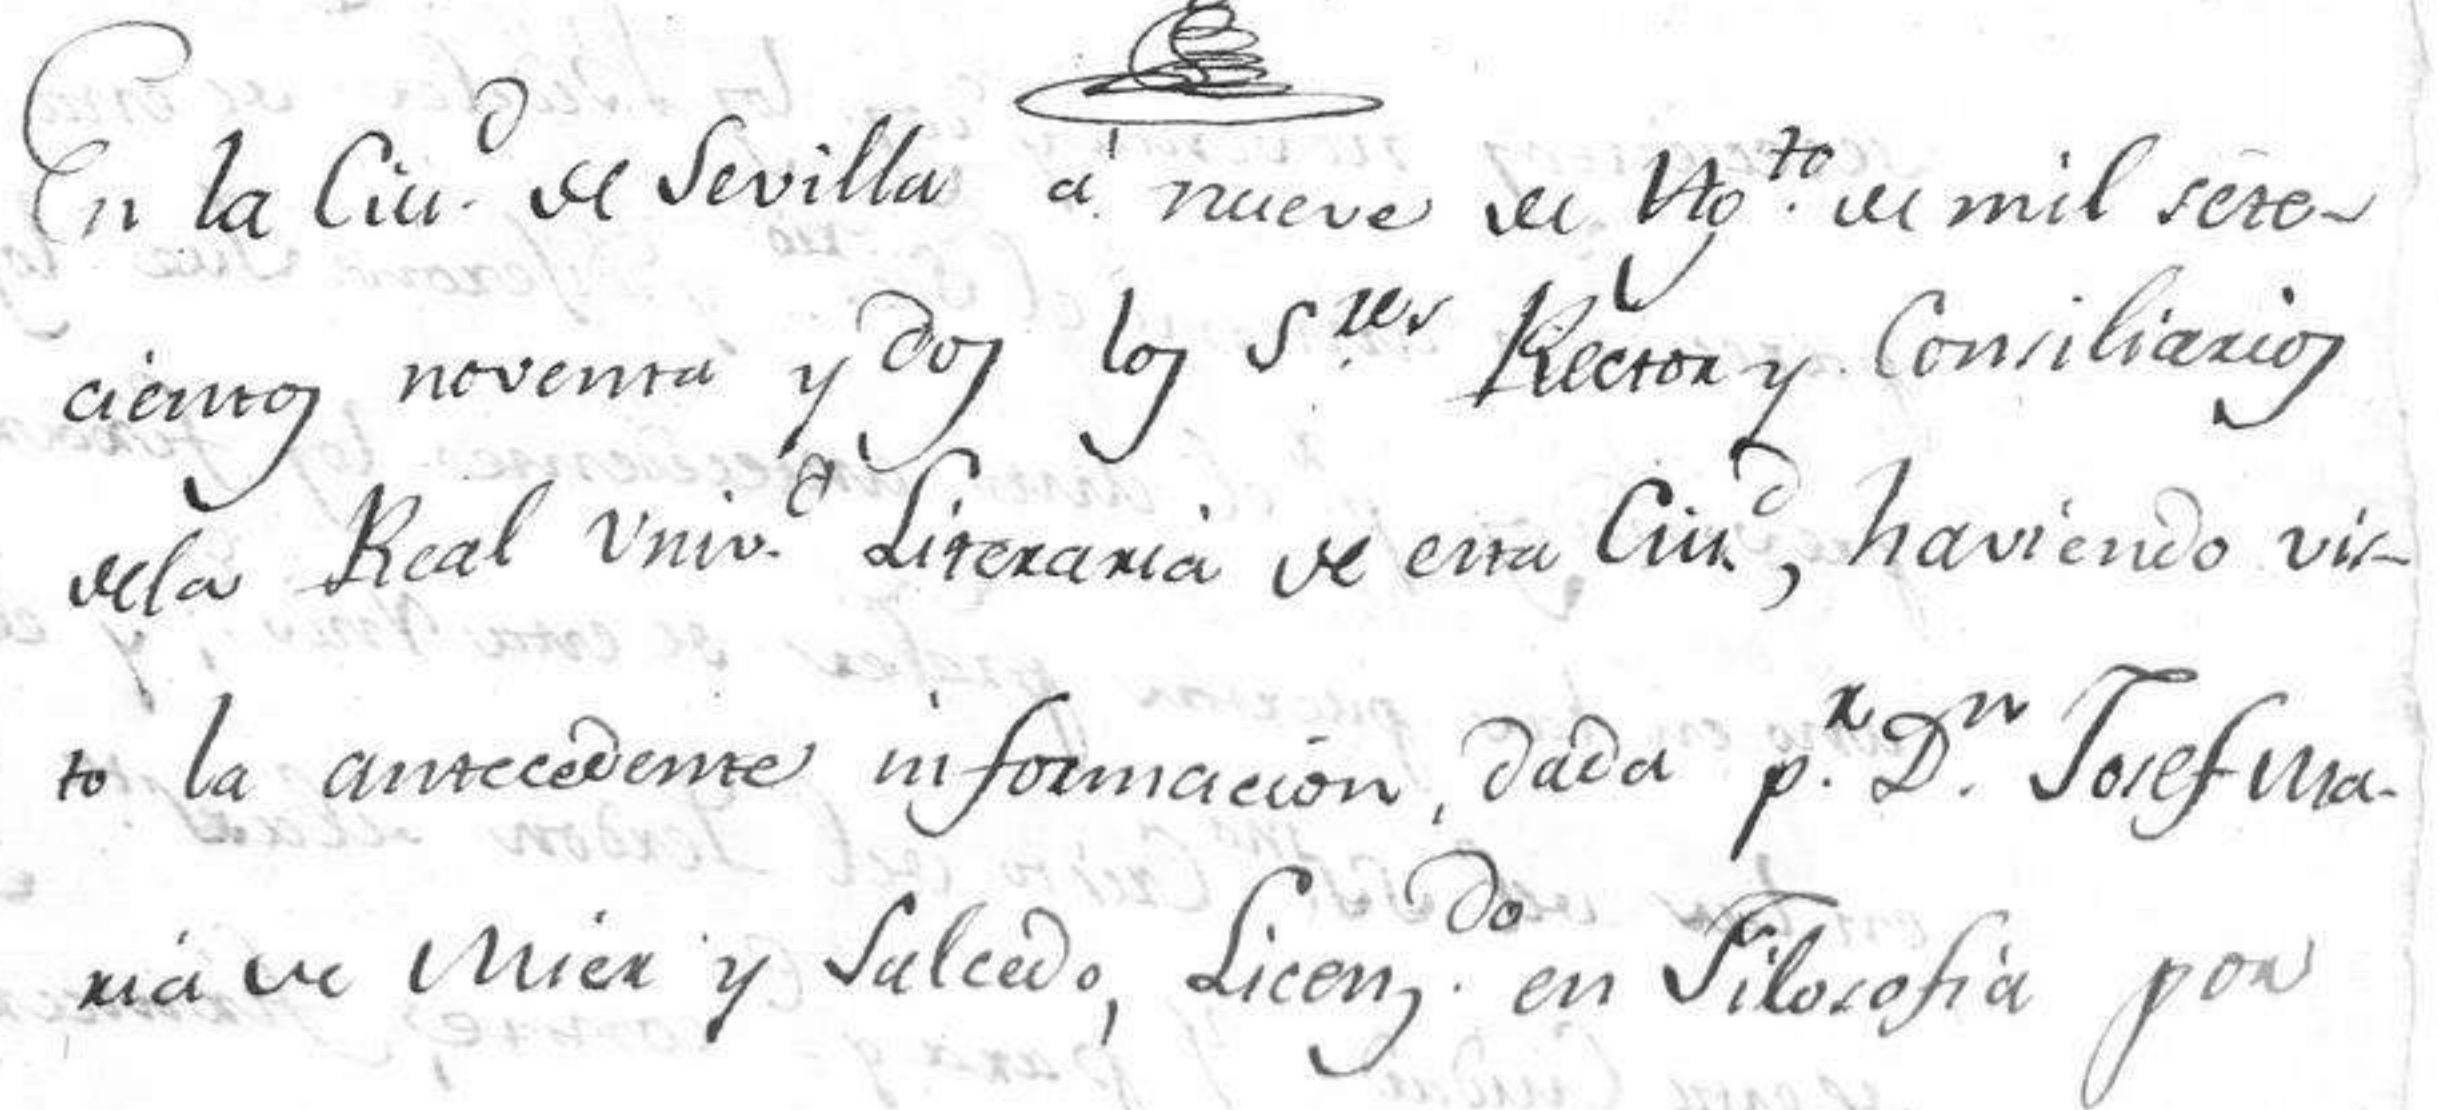 En la Ciu.d de Sevilla á nueve de Ag.to de mil sete-
cientos noventa y dos los S.res Rector y Consiliarios
dela Real Univ.d Literaria de esta Ciu.d, haviendo vis-
to la antecedente informacion, dada p.r D.n Josef Ma-
ria de Mier y Salcedo, Licenz.do en Filosofia por